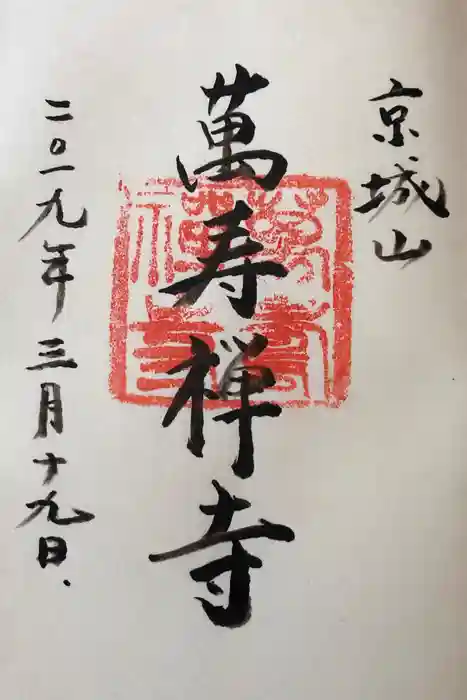 京城山
萬寿禅寺
二〇一九年三月十九日、